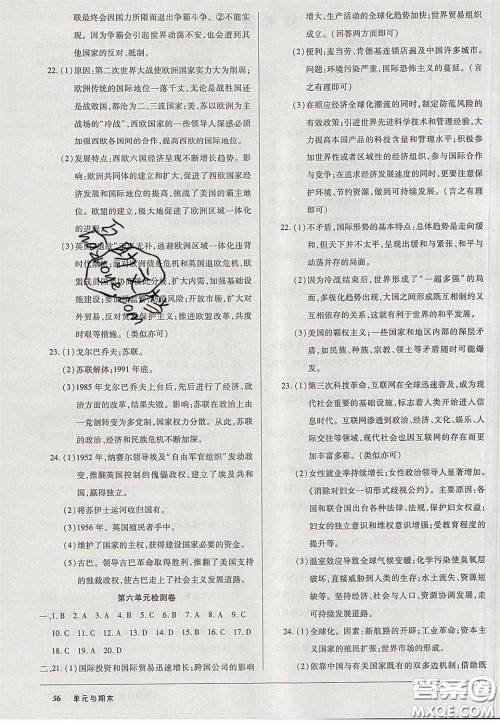 联最终会因国力所限而退出争霸斗争。②不能实
现。争霸会引起世界动荡、对抗与危机,也会遭到
其他国家的反对、抵制。
22. (1)原因:第二次世界大战使欧洲国家实力大为削弱;
欧洲传统的国际地位一落千丈,无论是战胜国还是
战败国,都沦为二、三流国家;美、苏以欧洲为主
战场的“冷战”,西欧国家的一些领导人深感必须
加强西欧各国间的合作。
(2)发展特点:西欧六国经济呈现不断增长趋势。影
响:欧洲共同体的建立和扩大,促进了欧洲国家经
济发展和国际地位的提高,挑战了美国的霸主地
位。欧盟的建立,极大地促进了欧洲区域一体化
的进程。
(3)英国
于事无补,逃避欧洲区域一体化违背
时代潮流。面对欧洲经济和退欧危机,欧
盟成员国
分歧,扩大内需,加强基础设
施建设;要
开放市场,扩大对
外贸易,反
保护主义;推进欧盟改革,共度
时艰等措施。(类似亦可)
23. (1)戈尔巴乔夫;苏联。
(2)苏联解体;1991 年底。
(3)1985 年戈尔巴乔夫上台后,先后进行了经济、政
治方面的改革,结果失败。影响:苏联共产党由
一党制转变为多党制,国家政权也发生了根本性
变化,苏联的经济和民族危机不断加重。
24. (1)1952 年,纳赛尔领导“自由军官组织”发动政
变,推翻英国控制的傀儡政权,建立了埃及共和
国,赢得独立。
(2)将苏伊士运河收归国有。
(3)1956 年。英国殖民者手中。
(4)维护了国家的主权,获得建设国家必要的资金。
(5)古巴。领导古巴人民推翻了美国支持的独裁
政权,使古巴走上了社会主义发展道路。
第六单元检测卷
一、1. B 2. A 3. D 4. A 5. D 6. D 7. B 8. A 9. C
10. C 11. D 12. C 13. D 14. B 15. A 16. B 17. D
18. C 19. A 20. C
二、21. (1)国际投资和国际贸易迅速增长;跨国公司的影响
56 单元与期末
增大,生产活动的全球化趋势加快;世界贸易组织
成立。(回答两方面即可)
(2)便利:麦当劳、肯德基连锁店遍及中国许多城市。
问题:金融风险加大,国际恐怖主义的威胁。(言
之有理即可)
(3)在顺应经济全球化潮流的同时,制定防范风险的
有效政策;引进世界先进科学技术和管理经验,大
力提高本国产品的科技含量和管理水平;积极参加
世界性或者区域性的经济组织,参与国际合作
与竞争;在迅速发展经济的同时,更要注意保
护环境、节约资源,做到可持续发展。(言之有理
即可)
22. (1)不矛盾,国际形势的基本特点;总趋势是走向缓
和,但天下并不太平,和平与动荡并存,缓和与紧
张同在。
(2)因为冷战结束后,世界形成了“一超多强”的格
局,多极化趋势出现,大国之间形成了既相互制约
又相互合作的关系,任何大国都不能独断世界事
务,这就有利于世界的和平与发展。
(3)美国的霸权主义;一些国家和地区内部的深层矛
盾,如民族、种族、宗教、领土等问题。(类似
亦可)
23. (1)第三次科技革命。互联网在全球迅速普及,成为现
代社会重要的基础设施,标志着人类开始了信息
时代。互联网渗透到政治、经济、文化、娱乐、人
际交往等方面,现代社会也因互联网的存在而出
现巨大的变化。
(2)女性就业率持续增长;女性政治领导人显著增加。
《消除对妇女一切形式歧视公约》。主要原因:各
国和联合国都出台了一系列男女平等、保护妇女
权益和地位的相关政策、法律;妇女自身也自立自
强,权利意识和维权意识增强;受教育的机会增
多等。
(3)温室效应导致全球气候变暖;化学污染严重破坏
自然环境,威胁人类的生存;水土流失、资源短
缺,尤其是土地资源、淡水资源等短缺。走可持
续发展道路。
24. (1)全球化。因素:新航路的开辟;工业革命;资本主
义国家的殖民扩张等。
(2)依靠中国与有关国家既有的双多边机制;借助既